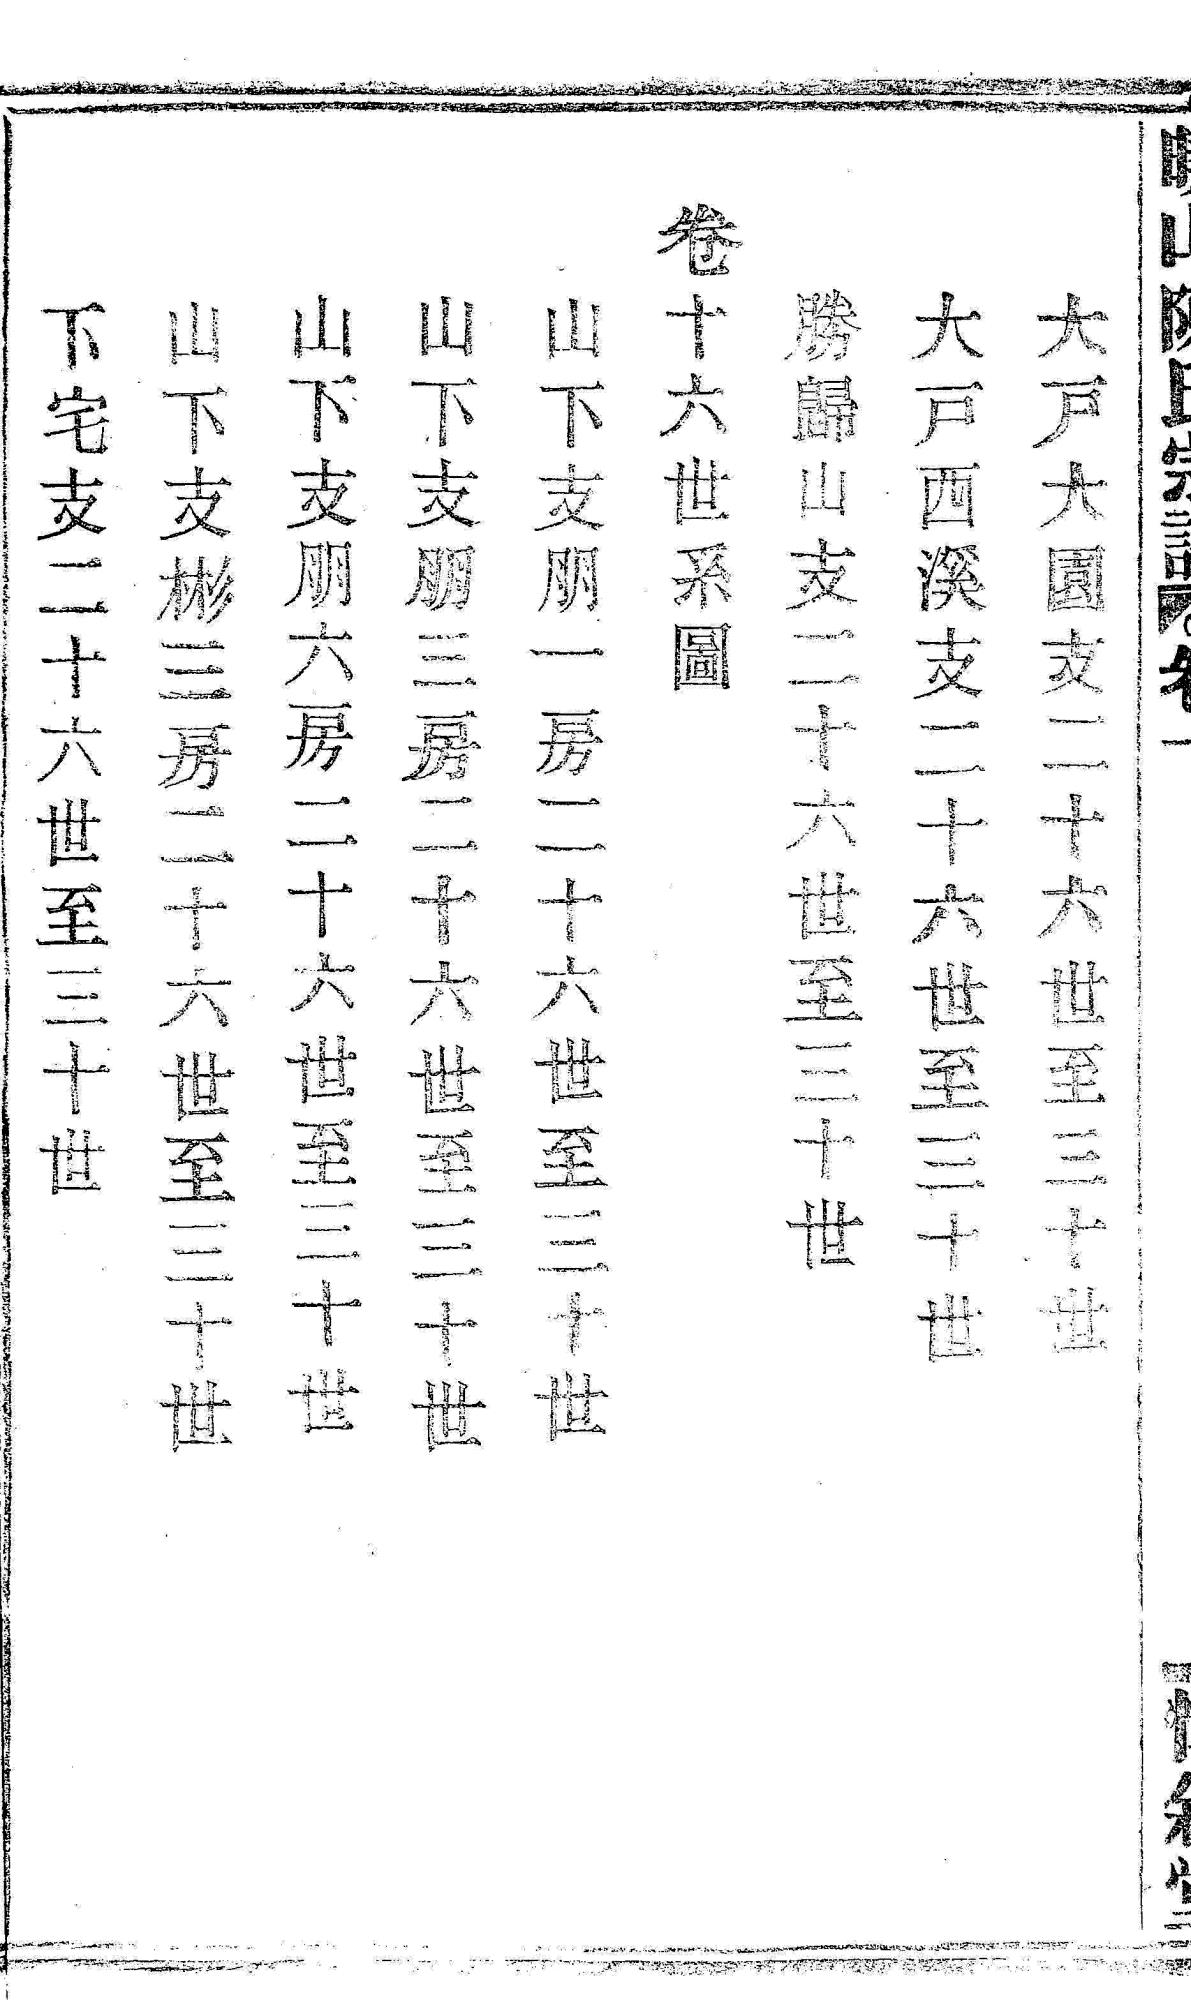 大戸大園支二十六世至三十世
大戸西溪支二十六世至三十世
勝歸山支二十六世至三十世
卷十六世系圖
山下支朋一房二十六世至三十世
山下支朋三房二十六世至三十世
山下支朋六房二十六世至三十世
山下支彬三房二十六世至三十世
下宅支二十六世至三十世